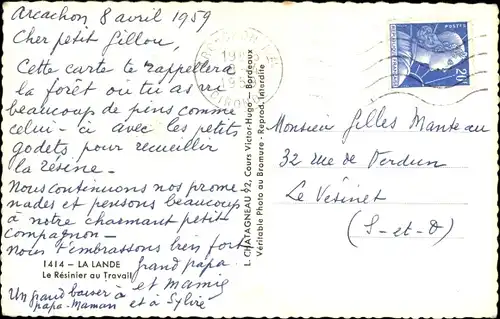 Arcachon 8 avril 1959
Cher petit Gillou,
Cette carte te rappellera
la forêt où tu as vu
beaucoup de pins comme
celui-ci avec les petits
godets pour recueillir
la résine -
Nous continuons nos prome
nades et pensons beaucoup
à notre charmant petit
compagnon -
Nous t'embrassons bien fort
grand papa
et mamie
1414 - LA LANDE
Le Résinier au Travail
Un grand baiser à
papa-Maman et à Sylvie
L. CHATAGNEAU 92, Cours Victor-Hugo - Bordeaux
Véritable Photo au Bromure - Reprod. Interdite
POSTES
20F
Monsieur Gilles Manteau
32 rue de Verdun
Le Vésinet
(S-et-O)